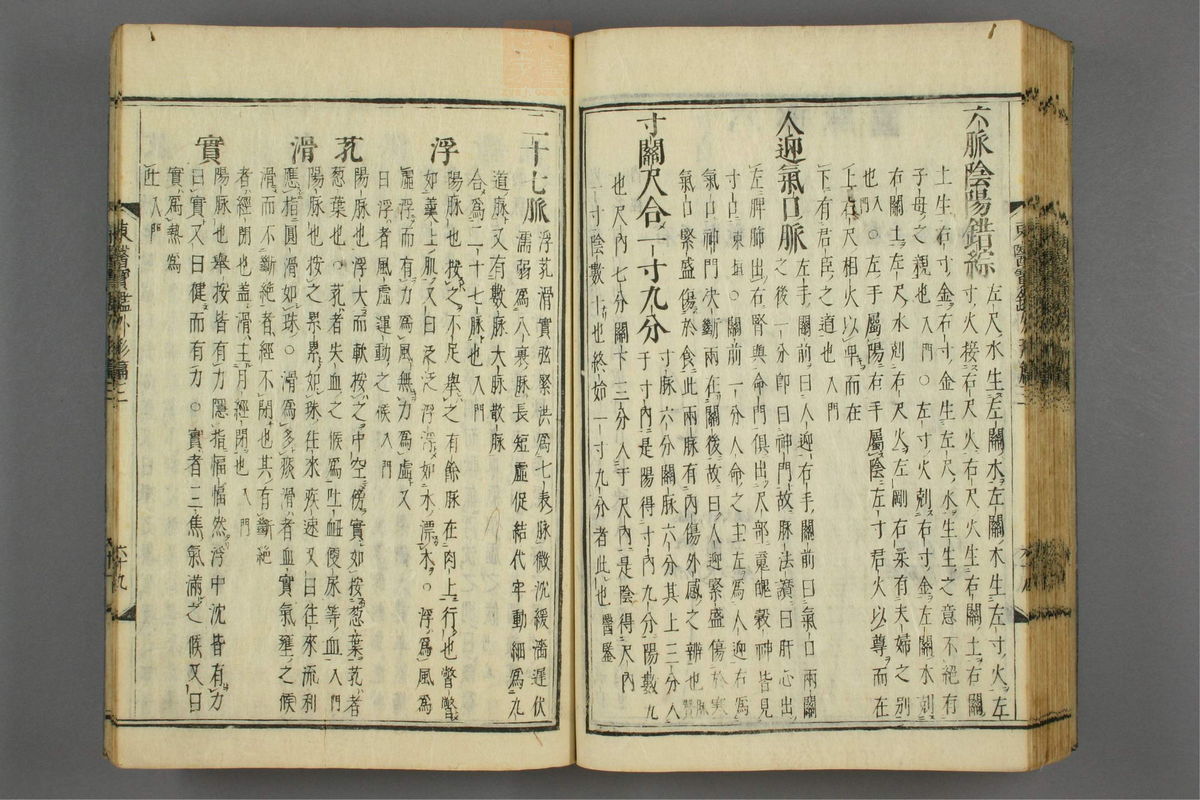 六脈陰陽錯綜 左尺水生左關木左關木生左寸火左
寸火接右尺火右尺火生右關土右關
土生右寸金右寸金生左尺水生生之意不絕有
子母之親也入門○左寸火剋右寸金左關木剋
右關土左尺水剋右尺火左剛右柔有夫婦之別
也入門○左手屬陽右手屬陰左寸君火以尊而在
上右尺相火以卑而在
下有君臣之道也入門
人迎氣口脈 左手關前曰人迎右手關前曰氣口兩關
之後一分卽曰神門故脈法讚曰肝心出
左脾肺出右腎與命門俱出尺部魂魄穀神皆見
寸口東垣○關前一分人命之主左爲人迎右爲
氣口神門決斷兩在關後故曰人迎緊盛傷於寒
氣口緊盛傷於食此兩脈有內傷外感之辨也脈贊
寸關尺合一寸九分 寸脈六分關脈六分其上三分入
于寸內是陽得寸內九分陽數九
也尺內七分關下三分入于尺內是陰得尺內
一寸陰數十也終始一寸九分者此也醫鑒
東醫寶鑑外形篇二
六十九
二十七脈 浮芤滑實弦緊洪爲七表脈微沈緩濇遲伏
濡弱爲八裏脈長短虛促結代牢動細爲九
道脈又有數脈大脈散脈
合爲二十七脈也入門
浮 陽脈也按之不足擧之有餘脈在肉上行也瞥瞥
如羹上肌又曰泛泛浮浮如水漂木○浮爲風爲
虛浮而有力爲風無力爲虛又
曰浮者風虛運動之候入門
芤 陽脈也浮大而軟按之中空傍實如按葱葉芤者
葱葉也○芤者失血之候爲吐衄便尿等血入門
滑 陽脈也按之累累如珠往來疾速又曰往來流利
應指圓滑如珠○滑爲多痰滑者血實氣壅之候
滑而不斷絕者經不閉也其有斷絕
者經閉也盖滑主月經閉也入門
實 陽脈也擧按皆有隱指愊愊然浮中沈皆有力
曰實又曰健而有力○實者三焦氣滿之候又曰
實爲熱爲
吐入門